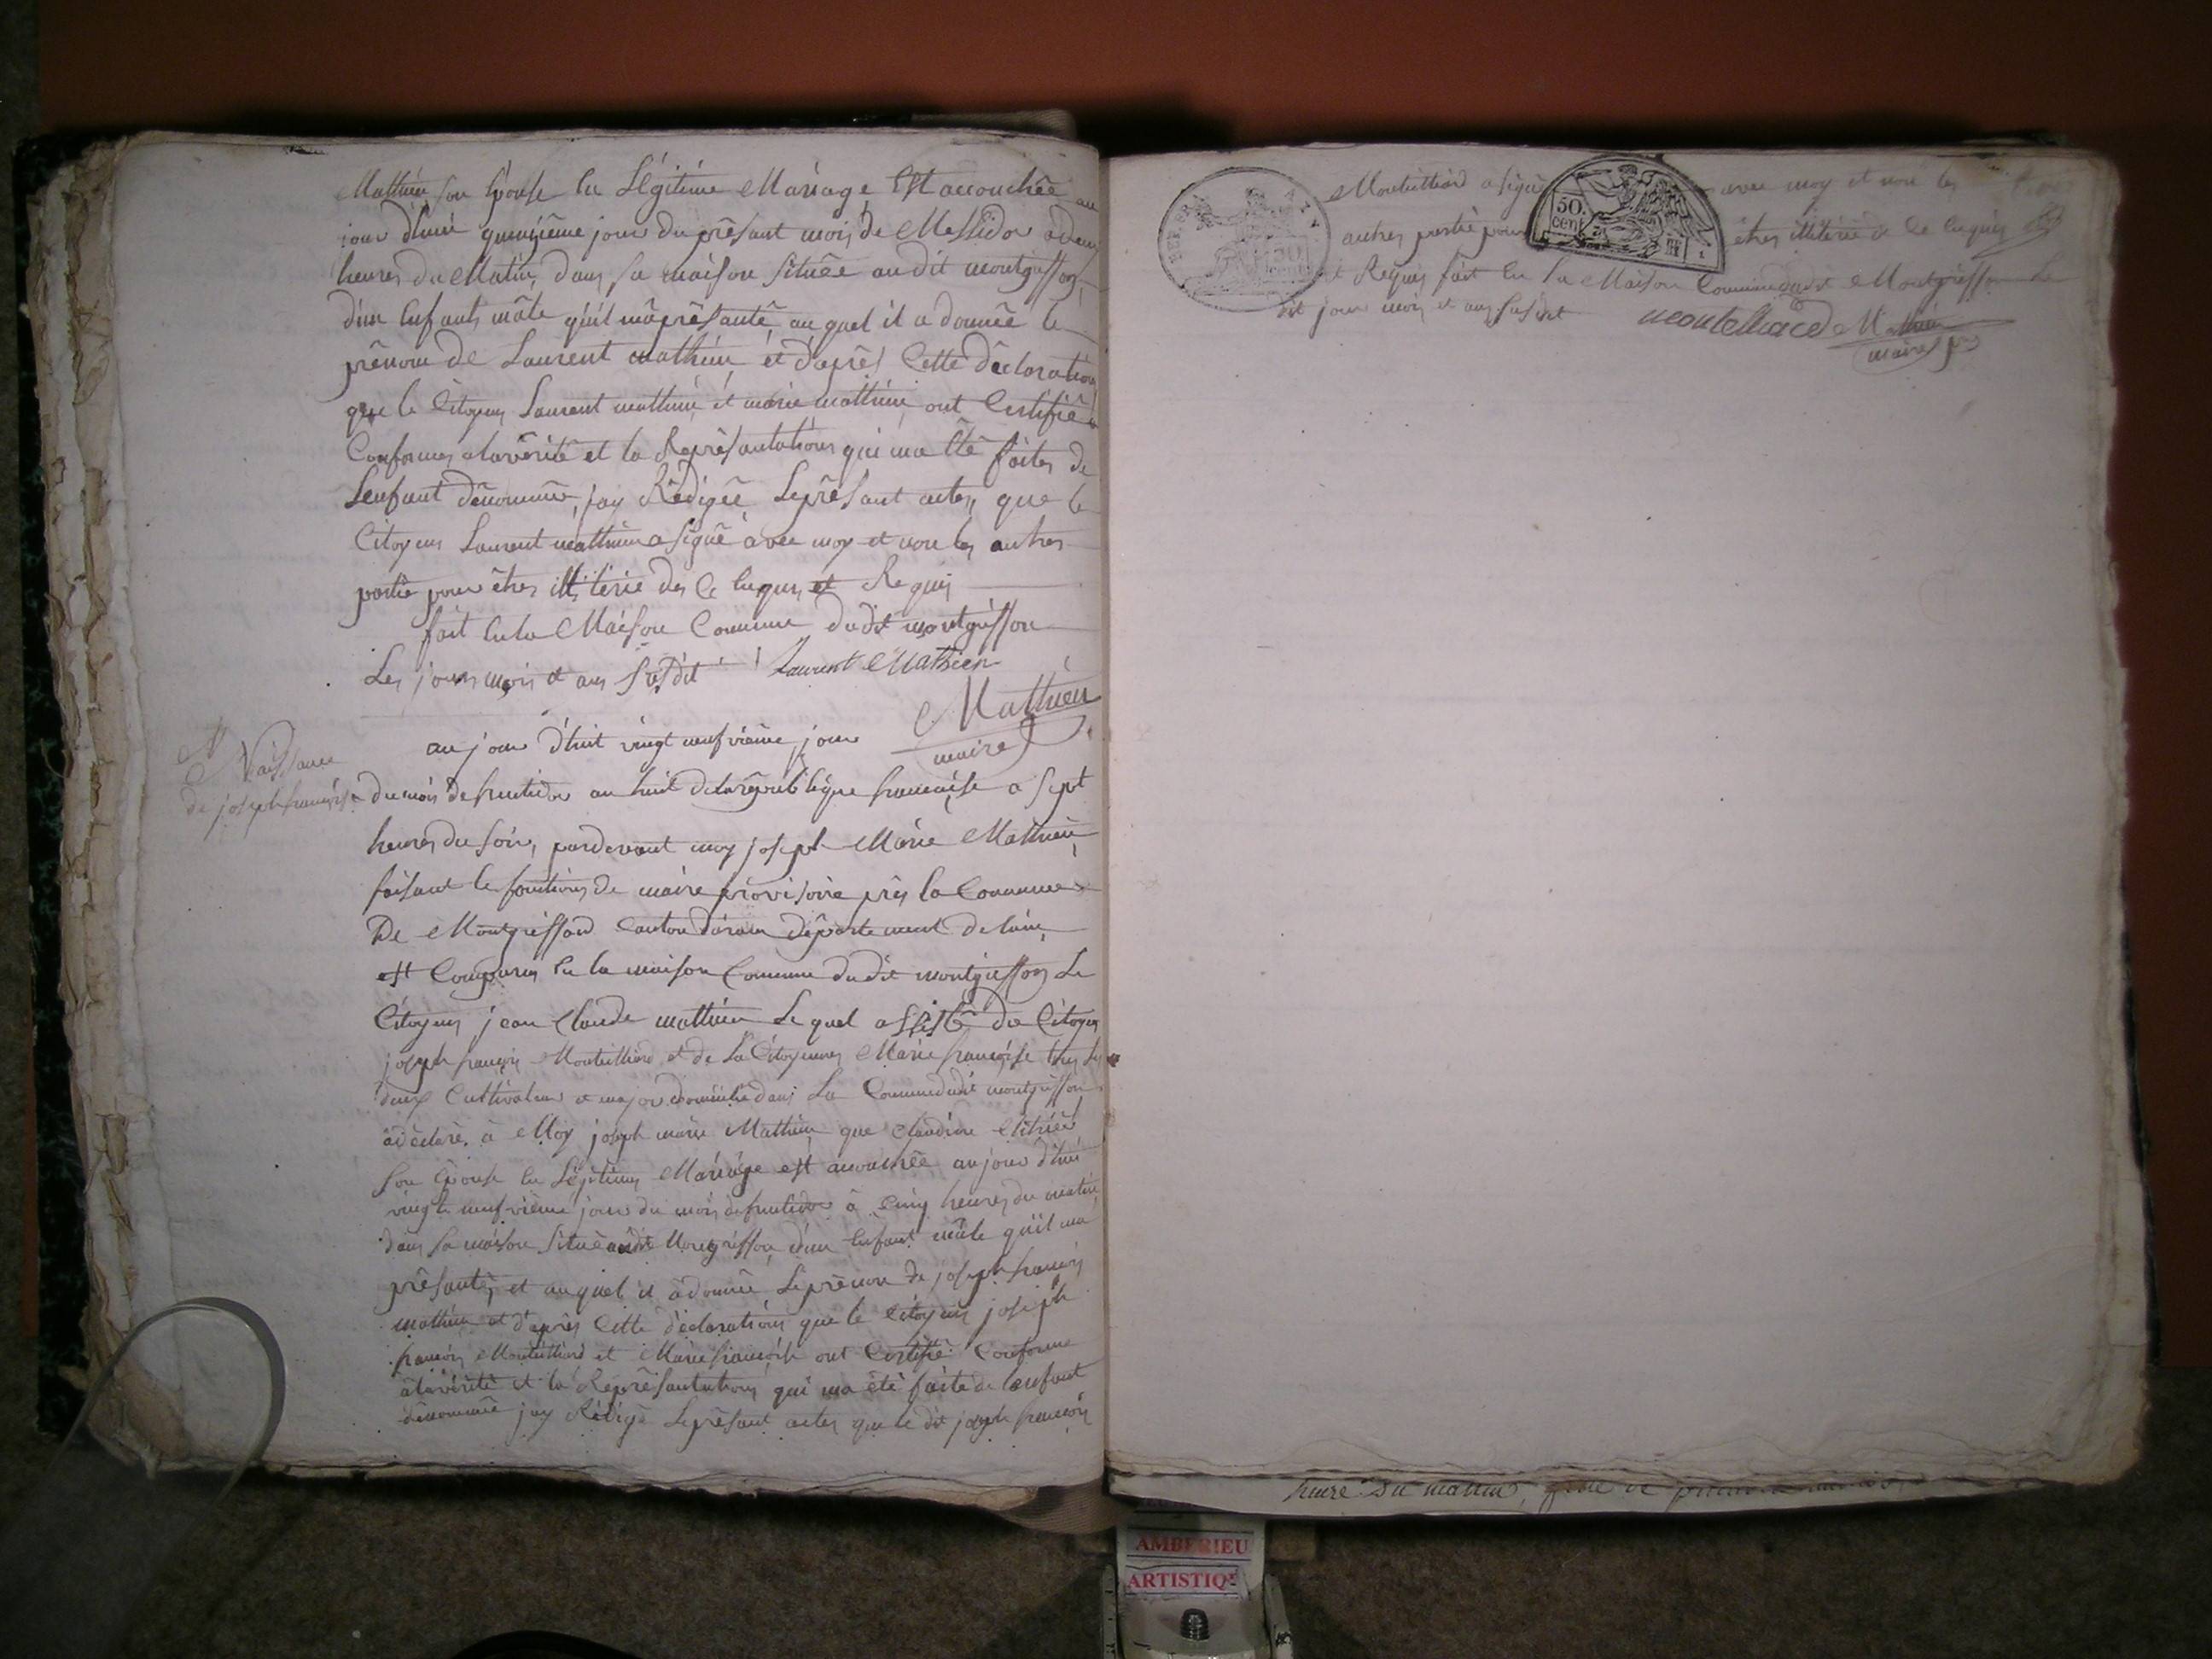 Mathieu son Epouse En Légitime Mariage Est accouchée au
jour d'huit quinzième jour du présant mois de Messidor a deux
heures du Matin, dans sa maison située au dit montgriffon
d'un Enfants mâle qu'il m'a présanté, au quel il a donnée le
prénom de Laurent mathieu, et d'aprês Cette déclaration
que le Citoyens Laurent mathieu et marie mathieu ont Certifiée
Conformes a la vérité et la Représantations qui m'a été faites de
L'enfant dénommée, j'ay Rédigée le présant actes, que le
Citoyens Laurent mathieu a signé avec moy et non les autres
partie pour êtres illiterie de ce Enquis et Requis
fait En la Maison Commune du dit montgriffon
Les jours mois et ans susdit Laurent Mathieu
Mathieu
maire
Naissance
de joseph françois
au jour d'huit vingt neufvième jour
du mois de fructidor an huit de la république française a sept
heures du soir, pardevant moy joseph Marie Mathieu
faisant le fonctions de maire provisoire près la Commune
De Montgriffond Canton d'aran département de l'ain,
est Comparus En la maison Commune du dit montgriffon Le
Citoyens jean Claude mathieu Le quel assisté du Citoyen
joseph françois Montilliard et de La Citoyennes Marie françoise tous les
deux Cultivateurs et major domicilié dans La Commune dudit montgriffon
a déclaré à Moy joseph marie Mathieu que Claudine
Son Epouse En Légitimes Mariage est accouchée au jour d'huit
vingt neufvième jour du mois de fructidor à Cinq heures du matin
dans sa maison située audit Montgriffon, d'un Enfant mâle qu'il m'a
présanté, et au quel il a donnée Le prénom de joseph françois
mathieu et d'après Cette déclarations que le Citoyens joseph
françois Montilliard et Marie françoise ont Certifié Conforme
à la vérité et la Représantations qui m'a été faite de l'enfant
dénommée j'ay Rédigé Le présant actes que le dit joseph françois
Montilliard a signé avec moy et non les
autres partie pour êtres illiterié de ce Enquis
et Requis fait En la Maison Commune dudit Montgriffon Le
dit jour mois et ans susdit Montelliard Mathieu
maire pre
50.
cent
heure du matin,
AMBERIEU
ARTISTIQUE